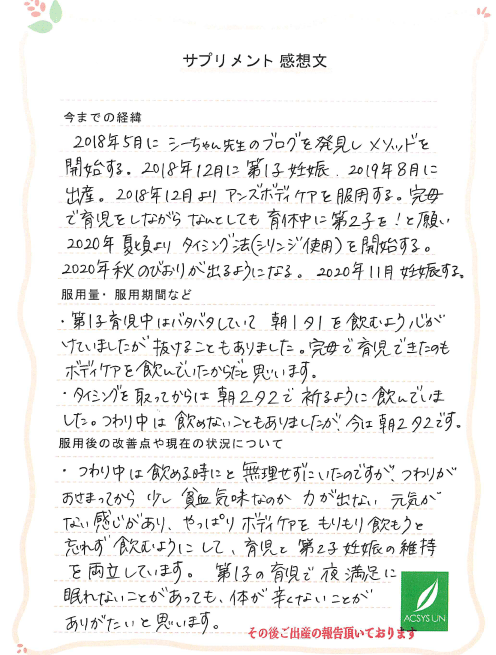 サプリメント 感想文
今までの経緯
2018年5月に シーちゃん先生のブログを発見し メソッドを
開始する。2018年12月に 第1子 妊娠、2019年8月に
出産。2018年12月より アンズボディケアを服用する。完母
で育児をしながら なんとしても 育休中に第2子を！と願い
2020年 夏頃より タイミング法(シリンジ使用)を開始する。
2020年秋 のびおりが出るようになる。2020年11月 妊娠する。
服用量・服用期間など
・第1子育児中はバタバタしていて 朝1夕1を飲むよう心が
けていましたが 抜けることもありました。完母で育児できたのも
ボディケアを飲んでいたからだと思います。
・タイミングを取ってからは 朝2夕2で 祈るように飲んでいま
した。つわり中は 飲めないこともありましたが、今は朝2夕2です。
服用後の改善点や現在の状況について
・つわり中は飲める時にと 無理せずにいたのですが、つわりが
おさまってから 少し 貧血気味なのか 力が出ない 元気が
ない感じがあり、やっぱり ボディケアを もりもり飲もうと
忘れず 飲むように して、育児と 第2子妊娠の維持
を両立しています。第1子の育児で夜満足に
眠れないことがあっても、体が辛くないことが
ありがたいと思います。
ACSYS UN
その後ご出産の報告頂いております